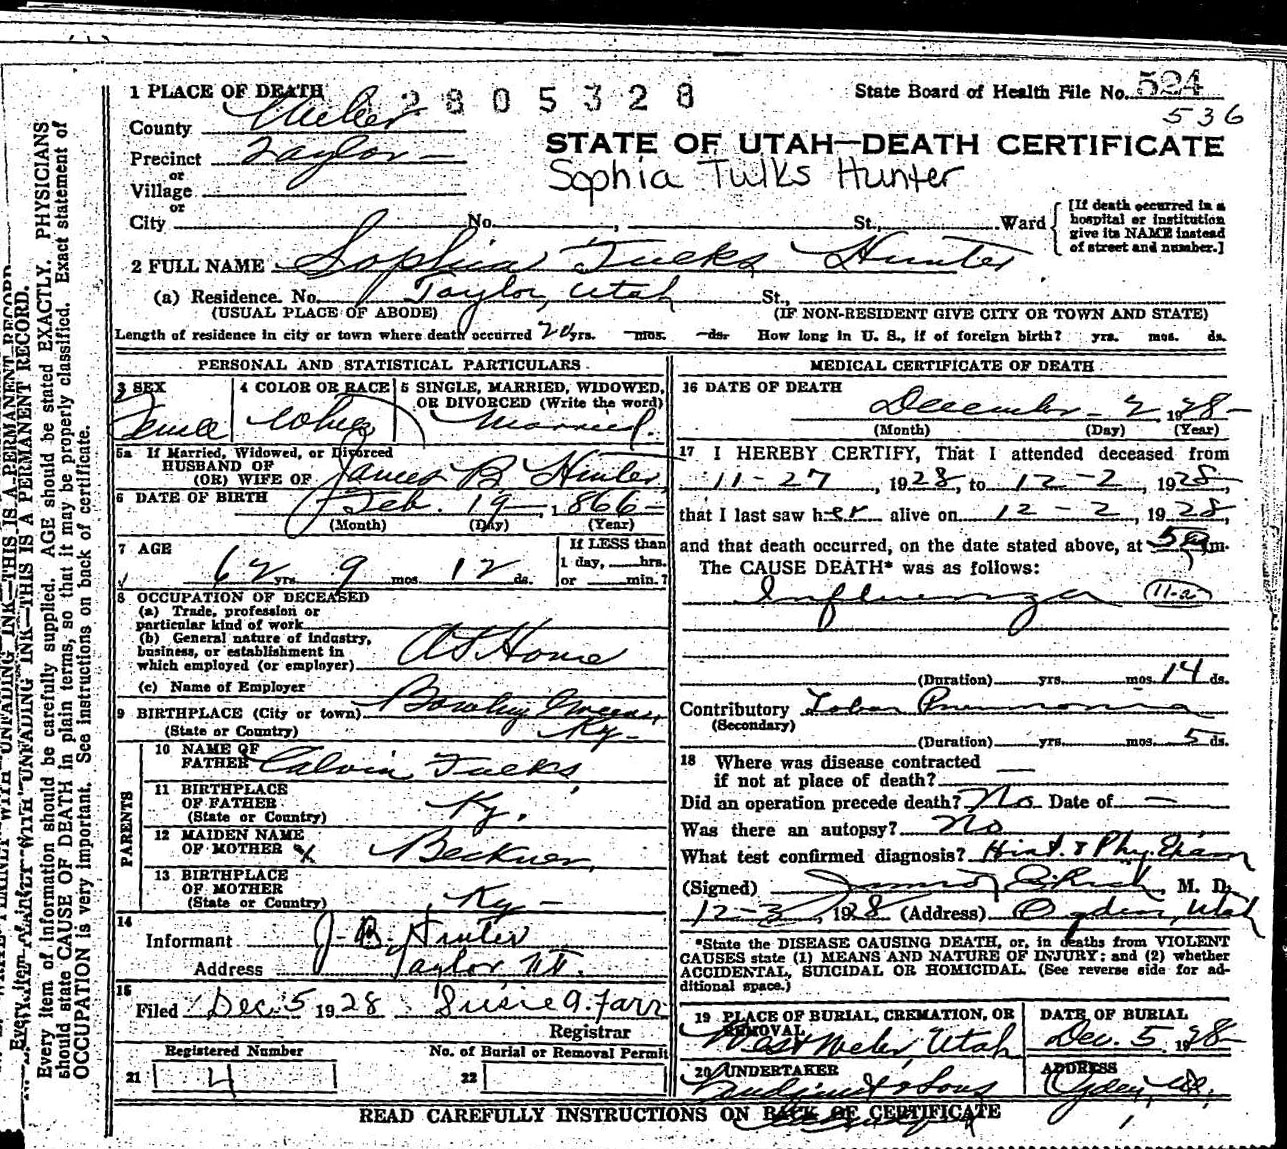 1 PLACE OF DEATH 2805328 State Board of Health File No. 524
536
County Weber
Precinct Taylor
or
Village
or
City No. , St., Ward
[If death occurred in a hospital or institution give its NAME instead of street and number.]
STATE OF UTAH—DEATH CERTIFICATE
Sophia Tulks Hunter
2 FULL NAME Sophia Tucks Hunter
(a) Residence. No. Taylor, Utah St.,
(USUAL PLACE OF ABODE) (IF NON-RESIDENT GIVE CITY OR TOWN AND STATE)
Length of residence in city or town where death occurred 20 yrs. — mos. — ds. How long in U. S., if of foreign birth? yrs. mos. ds.
PERSONAL AND STATISTICAL PARTICULARS
3 SEX 4 COLOR OR RACE 5 SINGLE, MARRIED, WIDOWED,
OR DIVORCED (Write the word)
Female White Married.
5a If Married, Widowed, or Divorced
HUSBAND OF
(OR) WIFE OF James B Hunter
6 DATE OF BIRTH Feb. 19—, 1866—
(Month) (Day) (Year)
7 AGE If LESS than
62 yrs. 9 mos. 12 ds. 1 day, hrs.
or min.?
8 OCCUPATION OF DECEASED
(a) Trade, profession or
particular kind of work
(b) General nature of industry,
business, or establishment in
which employed (or employer) At Home
(c) Name of Employer
9 BIRTHPLACE (City or town) Bowling Green
(State or Country) Ky—
PARENTS
10 NAME OF
FATHER Calvin Tucks,
11 BIRTHPLACE
OF FATHER Ky.
(State or Country)
12 MAIDEN NAME
OF MOTHER x Beckner,
13 BIRTHPLACE
OF MOTHER
(State or Country) Ky—
14
Informant J. B. Hunter
Address Taylor Ut.
15
Filed Dec. 5 1928 Susie A. Farr
Registrar
Registered Number No. of Burial or Removal Permit
21 4 22
MEDICAL CERTIFICATE OF DEATH
16 DATE OF DEATH
December - 2 1928-
(Month) (Day) (Year)
17 I HEREBY CERTIFY, That I attended deceased from
11-27, 1928, to 12-2, 1928,
that I last saw her alive on 12-2, 1928,
and that death occurred, on the date stated above, at 5 m.
The CAUSE DEATH* was as follows:
Influenza 11-a
(Duration) yrs. mos. 14 ds.
Contributory Lobar Pneumonia
(Secondary)
(Duration) yrs. mos. 5 ds.
18 Where was disease contracted
if not at place of death? —
Did an operation precede death? No Date of —
Was there an autopsy? No
What test confirmed diagnosis? Hist. & Phy. Exam
(Signed) , M. D.
12-3, 1928 (Address) Ogden, Utah
*State the DISEASE CAUSING DEATH, or, in deaths from VIOLENT
CAUSES state (1) MEANS AND NATURE OF INJURY; and (2) whether
ACCIDENTAL, SUICIDAL OR HOMICIDAL. (See reverse side for ad-
ditional space.)
19 PLACE OF BURIAL, CREMATION, OR
REMOVAL DATE OF BURIAL
West Weber, Utah Dec. 5 1928-
20 UNDERTAKER ADDRESS
& Sons Ogden, Ut.,
READ CAREFULLY INSTRUCTIONS ON BACK OF CERTIFICATE
WITH UNFADING INK—THIS IS A PERMANENT RECORD.
Every item of information should be carefully supplied. AGE should be stated EXACTLY. PHYSICIANS
should state CAUSE OF DEATH in plain terms, so that it may be properly classified. Exact statement of
OCCUPATION is very important. See instructions on back of certificate.